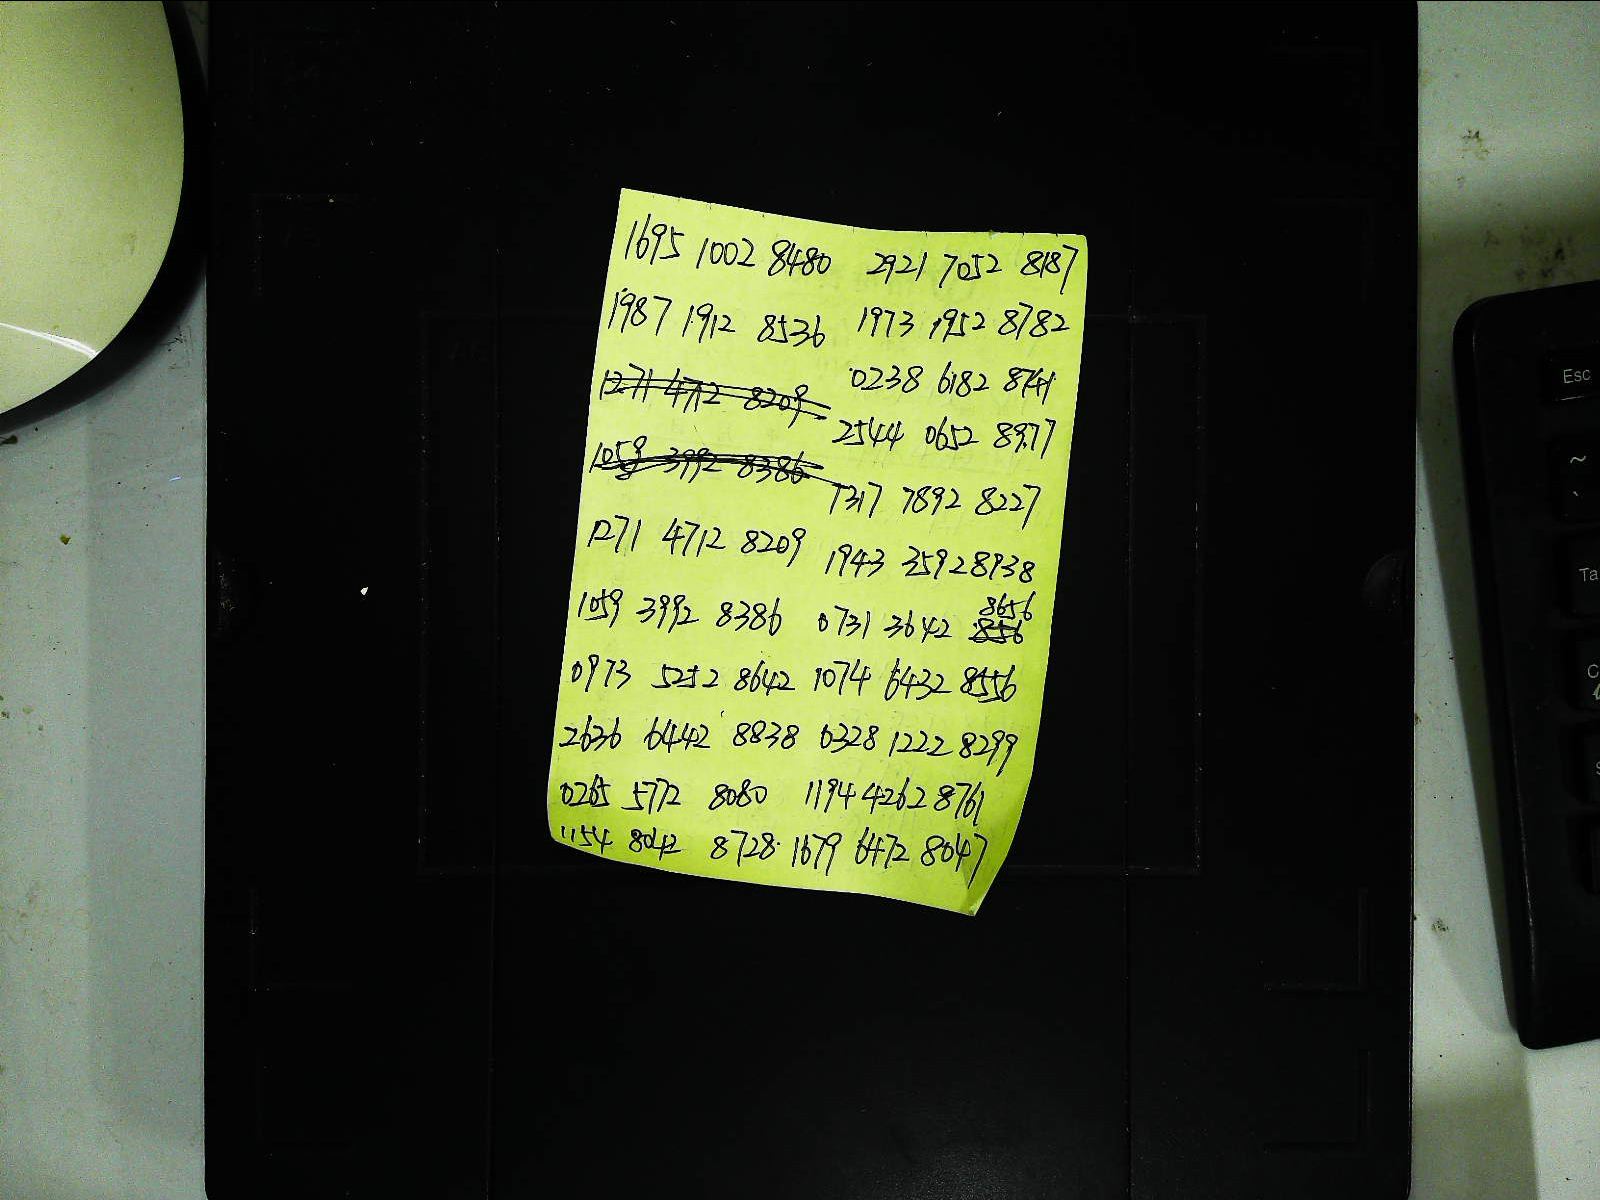 1695 1002 8480 2921 7052 8187
1987 1912 8536 1973 1952 8782
1271 4712 8209 0238 6182 8741
1059 3992 8386 2544 0652 8977
1317 7892 8227
1271 4712 8209 1943 3592 8938
8656
1059 3992 8386 0731 3642 856
0973 5252 8642 1074 6432 8556
2636 6442 8838 0328 1222 8299
0265 5772 8080 1194 4262 8761
1154 8042 8728 1679 6472 8047
Esc
~